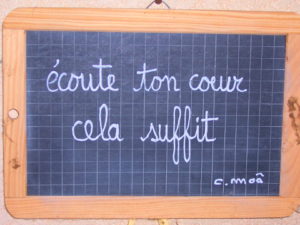 écoute ton cœur
cela suffit
c. moâ